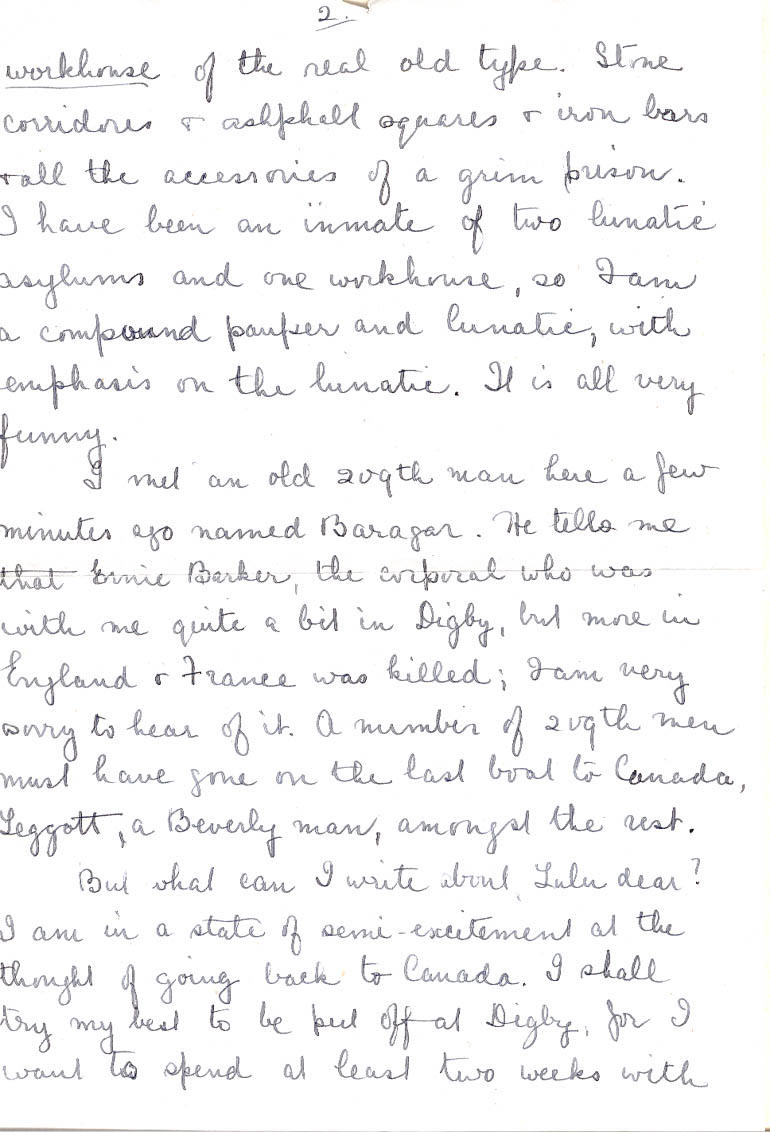 2.
workhouse of the real old type. Stone
corridores & ashphalt squares & iron bars
& all the accessories of a grim prison.
I have been an inmate of two lunatic
asylums and one workhouse, so I am
a compound pauper and lunatic, with
emphasis on the lunatic. It is all very
funny.
I met an old 209th man here a few
minutes ago named Baragar. He tells me
that Ernie Barker, the corporal who was
with me quite a bit in Digby, but more in
England & France was killed; I am very
sorry to hear of it. A number of 209th men
must have gone on the last boat to Canada,
Leggott, a Beverly man, amongst the rest.
But what can I write about, Lulu dear?
I am in a state of semi-excitement at the
thought of going back to Canada. I shall
try my best to be put off at Digby, for I
want to spend at least two weeks with